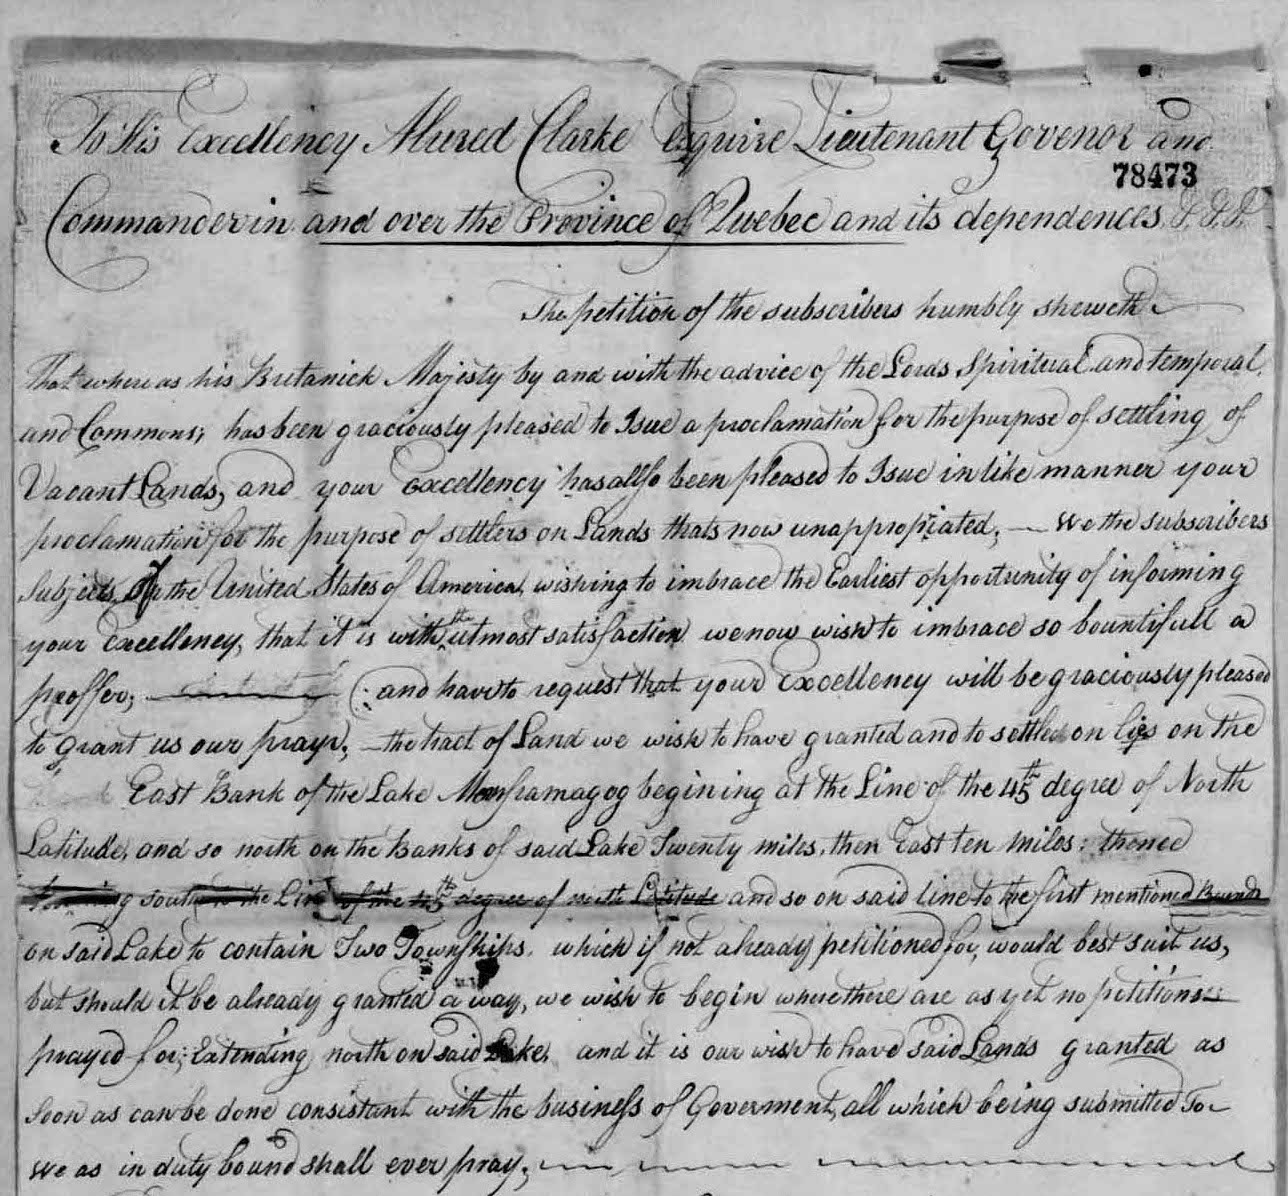 To His Excellency Alured Clarke Esquire Lieutenant Govenor and
78473
Commander in and over the Province of Quebec and its dependences, &&&
The petition of the subscribers humbly sheweth
That whereas his Bretanick Majesty by and with the advice of the Lords Spiritual and temporal,
and Commons; has been graciously pleased to Isue a proclamation for the purpose of settling of
Vacant Lands, and your Excellency has allso been pleased to Isue in like manner your
proclamation for the purpose of settlers on Lands thats now unappropriated; — We the subscribers
Subjects Of the United States of America, wishing to imbrace the Earliest opportunity of informing
your Excellency, that it is with the utmost satisfaction we now wish to imbrace so bountifull a
proffer; — (: and have to request that your Excellency will be graciously pleased
to grant us our prayr; — the tract of Land we wish to have granted and to settle on lies on the
East Bank of the Lake Memframagog begining at the Line of the 45th degree of North
Latitude, and so north on the Banks of said Lake Twenty miles, then East ten miles: thence
south to the Line of the 45th degree of north Latitude and so on said line to the first mentioned Bounds
on said Lake to contain Two Townships. which if not already petitioned for, would best suit us,
but should it be already granted a way, we wish to begin where there are as yet no petitions
prayed for; Extending north on said Lake, and it is our wish to have said Lands granted as
soon as can be done consistant with the business of Goverment, all which being submitted To
We as in duty bound shall ever pray;